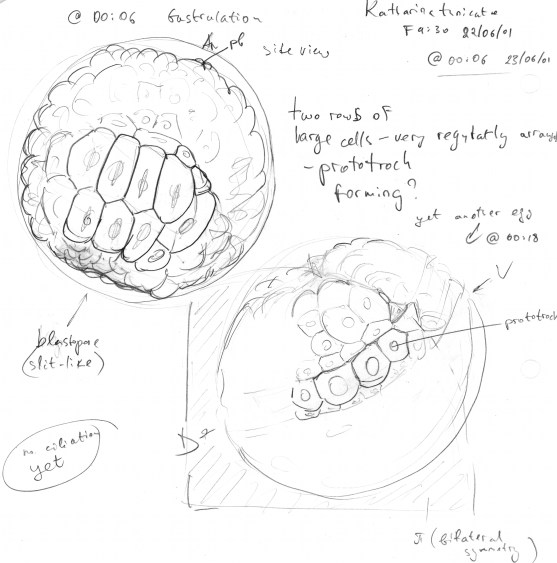 @ 00:06 Gastrulation
Katharina tunicata
F 9:30 22/06/01
@ 00:06 23/06/01
An pb side view
two rows of
large cells - very regularly arrayed
- prototroch
forming?
yet another egg
@ 00:18
V
prototroch
blastopore
(slit-like)
no ciliation
yet
D
π (bilateral
symmetry)